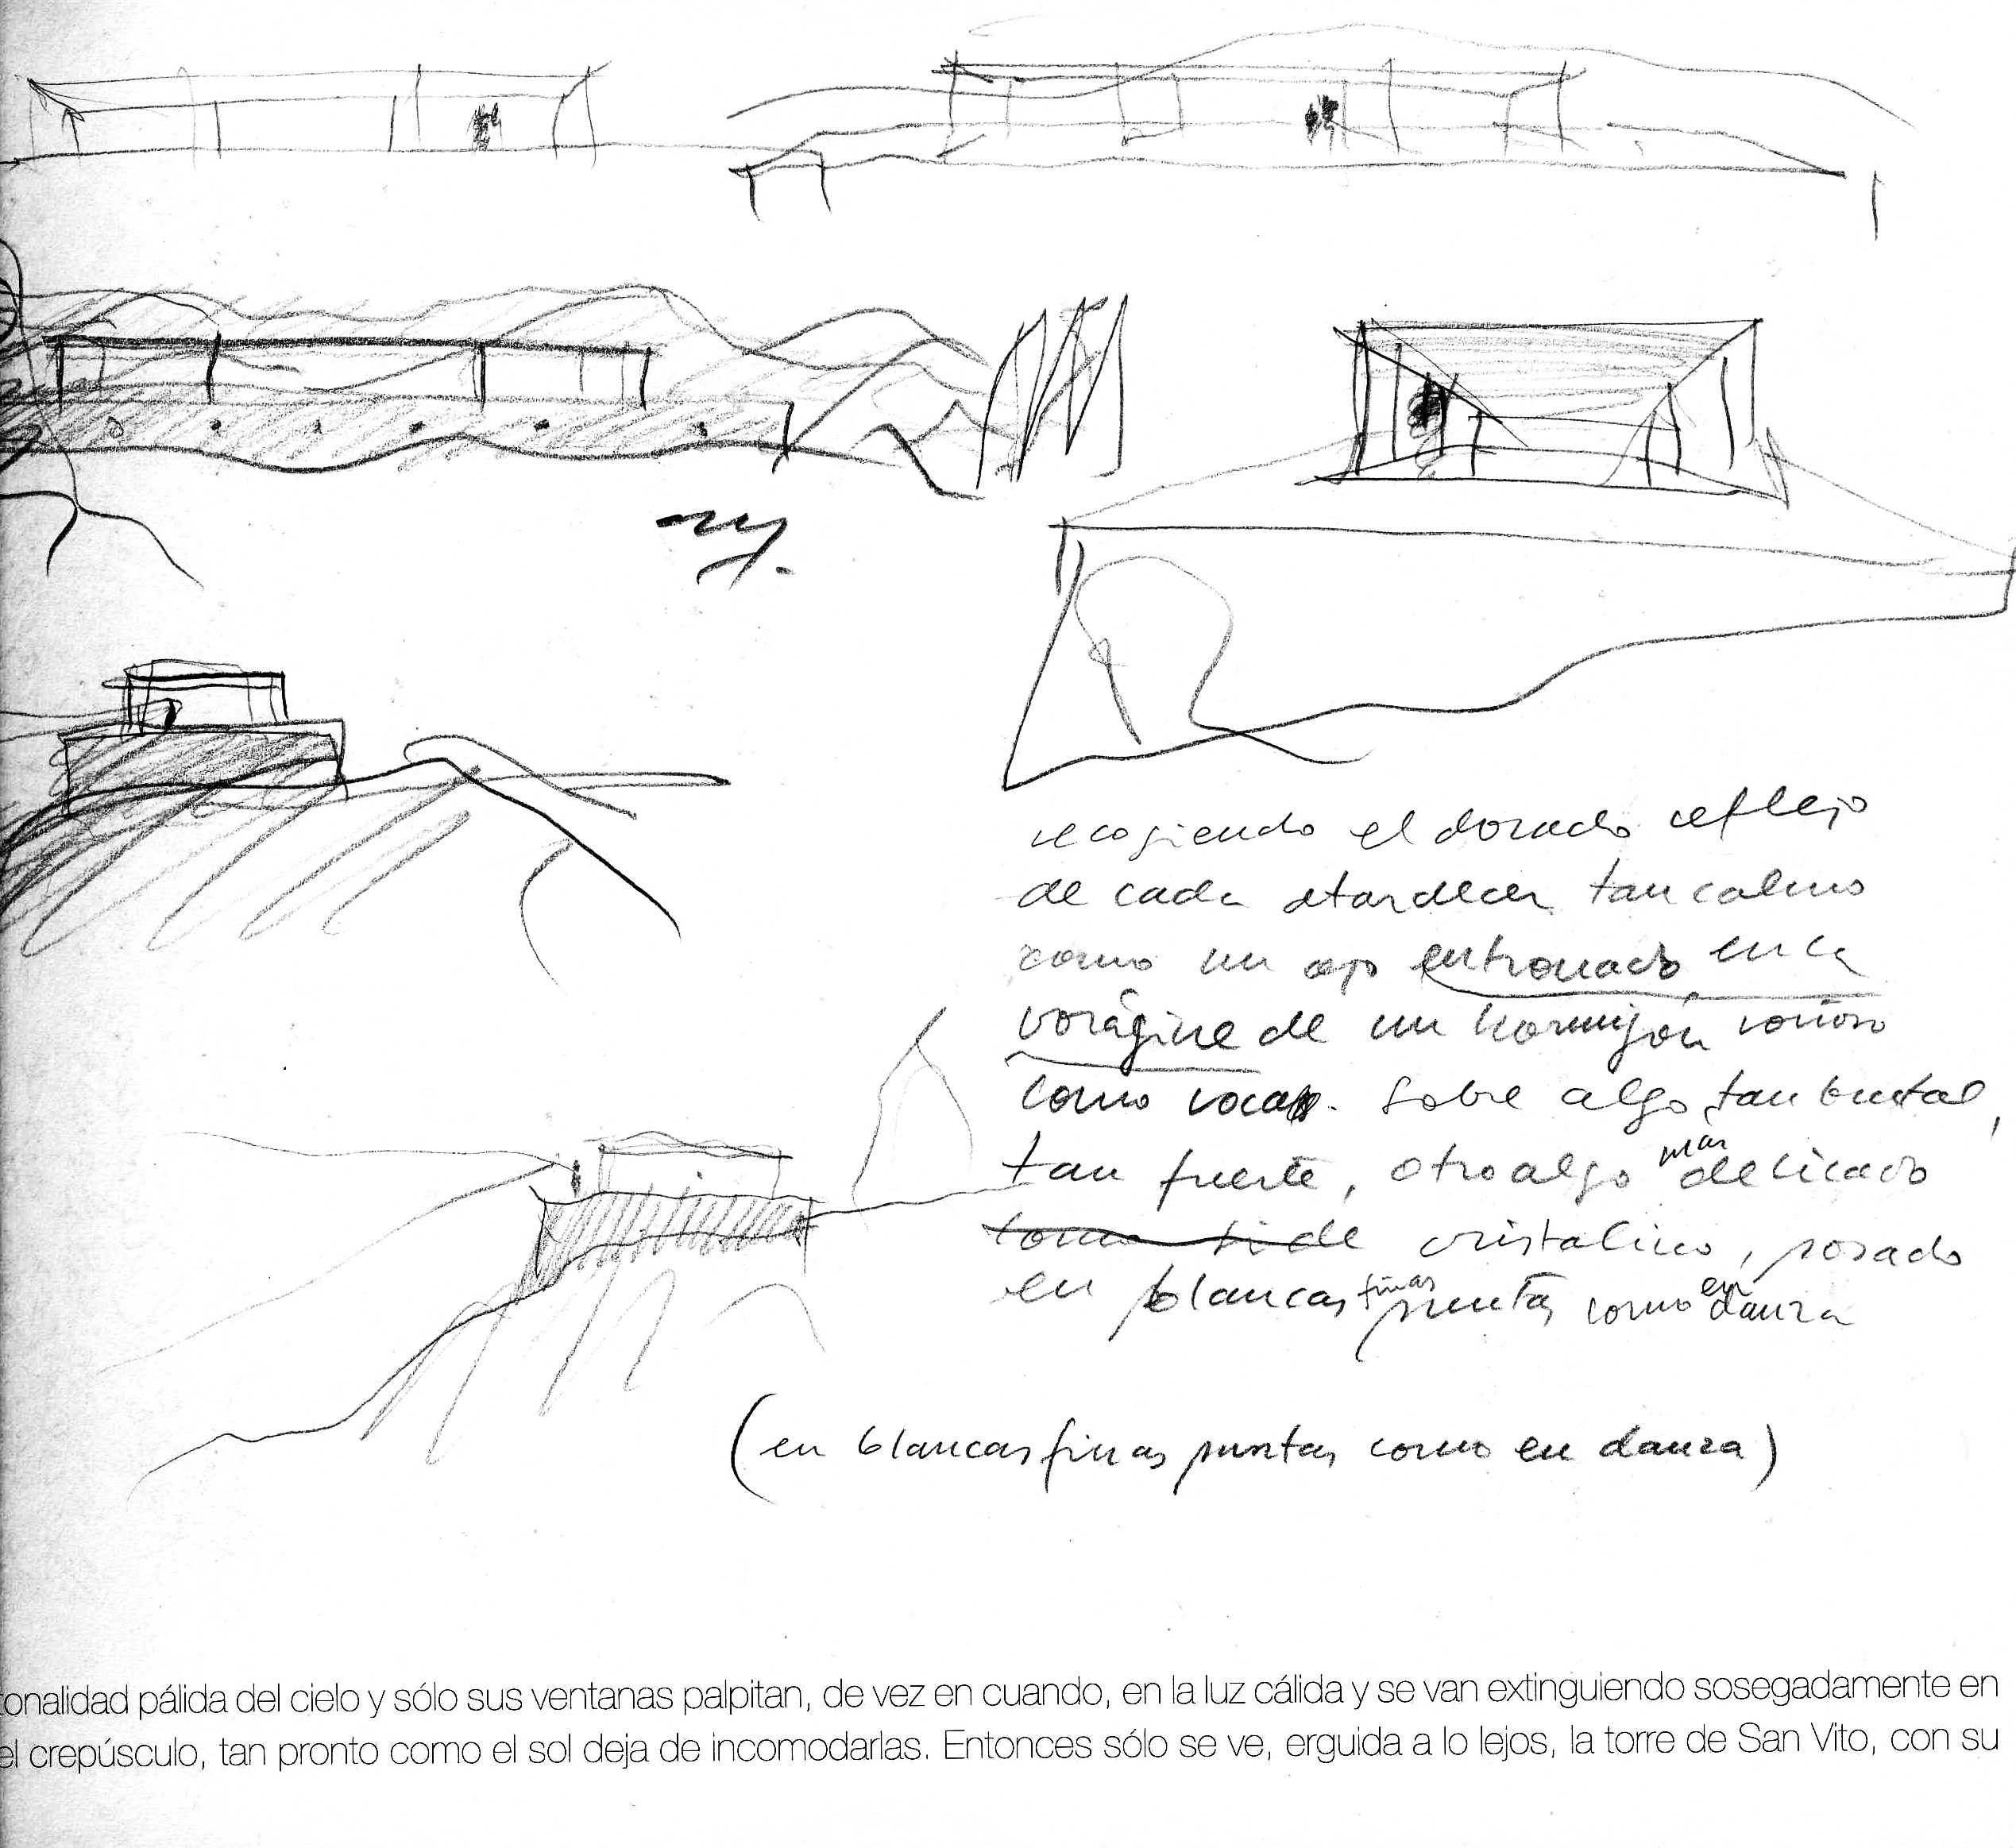 recogiendo el dorado reflejo
de cada atardecer tan calmo
como un ojo entronado en la
vorágine de un hormigón
como rocas. Sobre algo tan brutal,
tan fuerte, otro algo más delicado
de cristalino, posado
en blancas finas puntas como en danza
(en blancas finas puntas como en danza)
tonalidad pálida del cielo y sólo sus ventanas palpitan, de vez en cuando, en la luz cálida y se van extinguiendo sosegadamente en
el crepúsculo, tan pronto como el sol deja de incomodarlas. Entonces sólo se ve, erguida a lo lejos, la torre de San Vito, con su